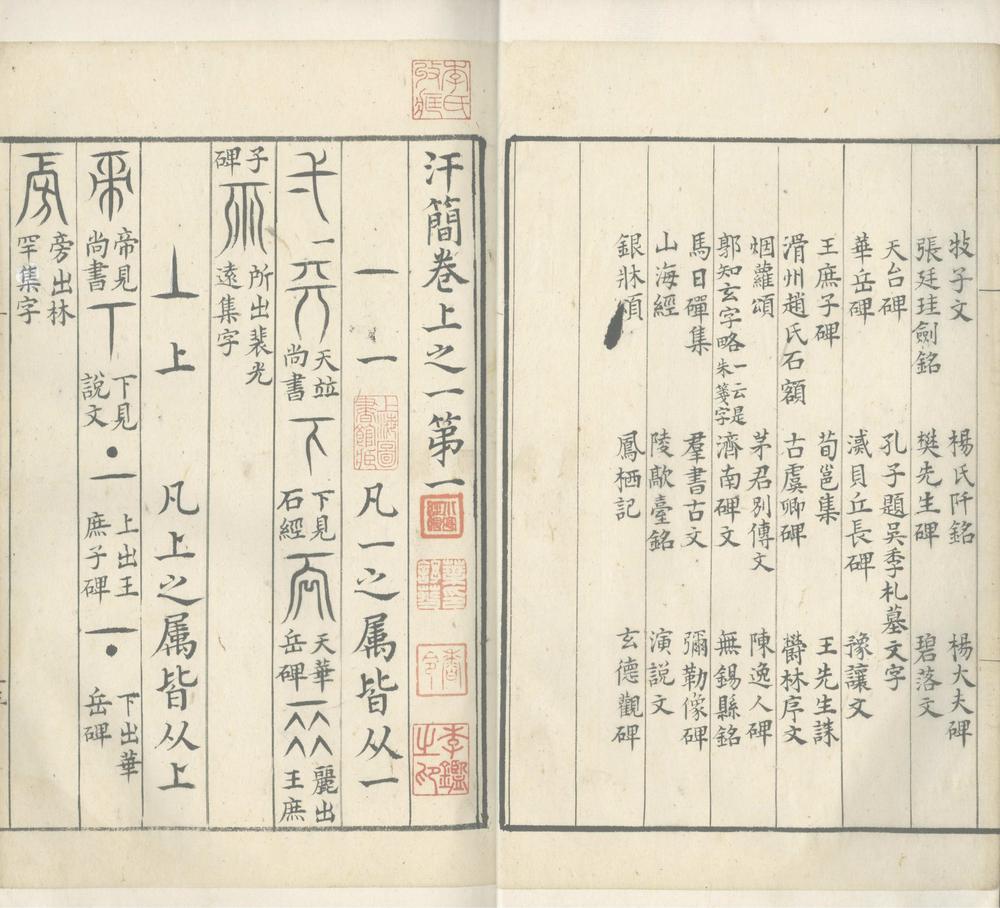 牧子文 楊氏阡銘 楊大夫碑
張廷珪劍銘 樊先生碑 碧落文
天台碑 孔子題吳季札墓文字
華岳碑 滅貝丘長碑 豫讓文
王庶子碑 荀邕集 王先生誄
滑州趙氏石額 古虞卿碑 欝林序文
烟蘿頌 茅君別傳文 陳逸人碑
郭知玄字略一云是朱箋字 濟南碑文 無錫縣銘
馬日磾集 羣書古文 彌勒像碑
山海經 陵歊臺銘 演説文
銀牀頌 鳳栖記 玄德觀碑
汗簡卷上之一第一
一 一 凡一之属皆从一
天並尚書 下見石經 天華岳碑 麗出王庶
子碑 所出裴光遠集字
丄 上 凡上之属皆从上
帝見尚書 下見説文 上出王庶子碑 下出華岳碑
旁出林罕集字
李鑑之印
上海圖書館藏